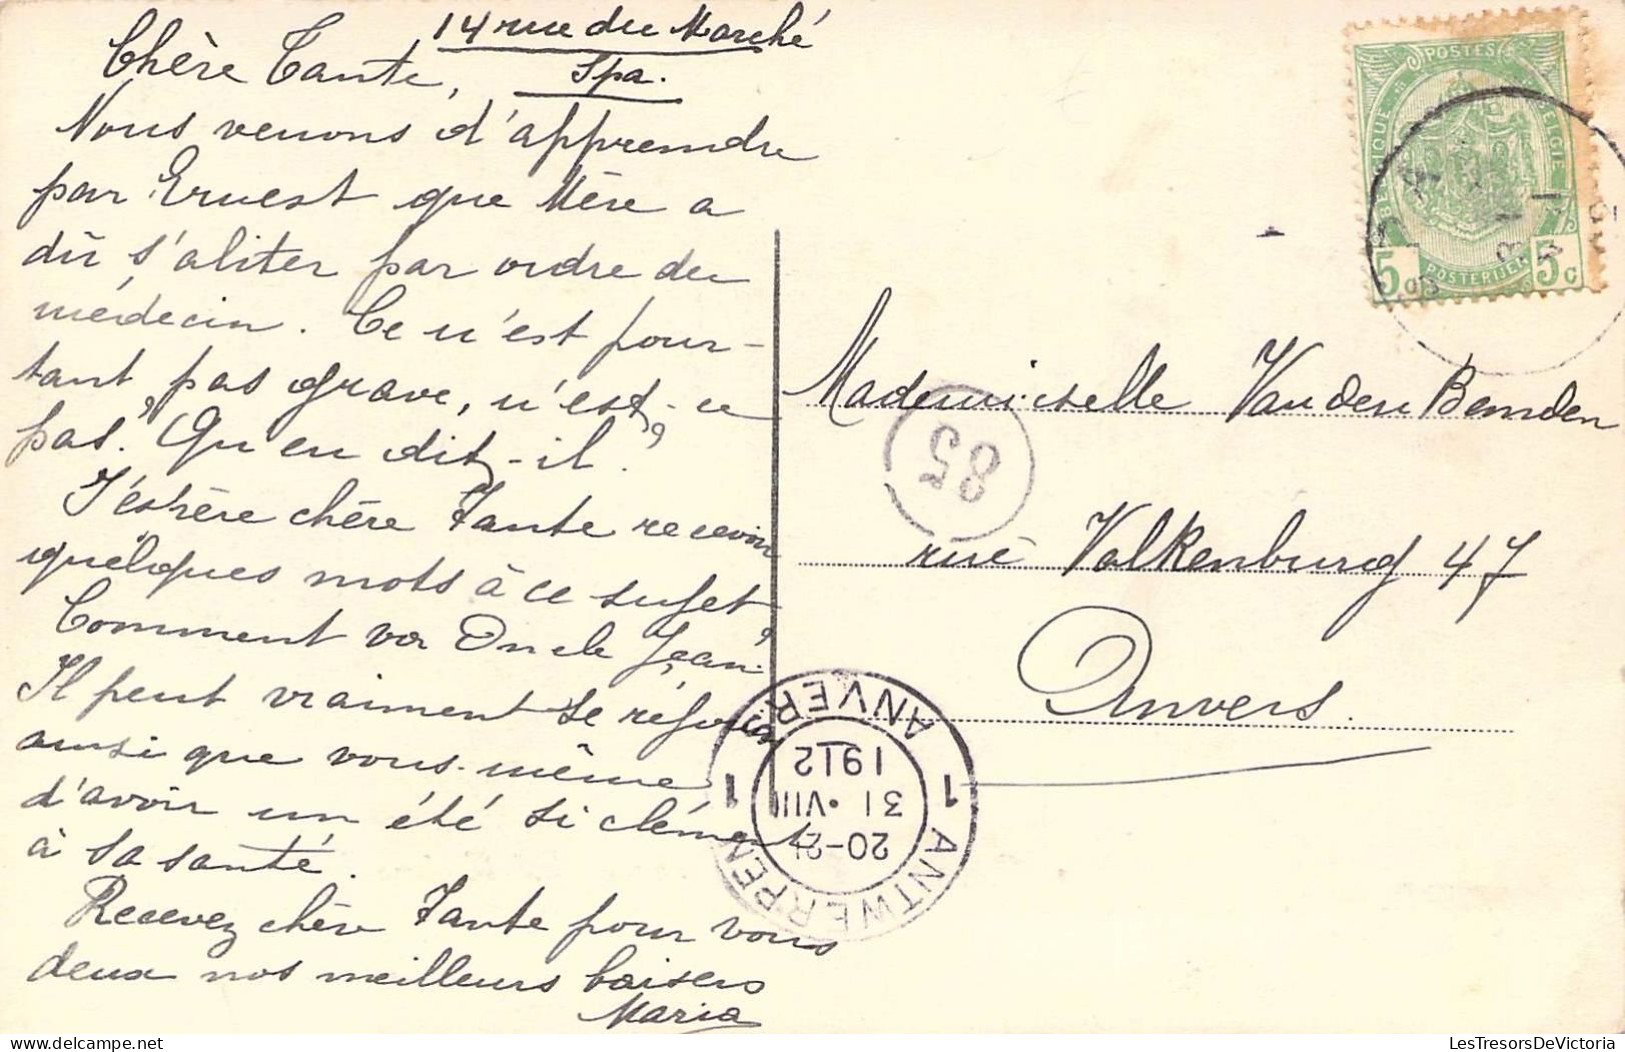 14 rue du Marché
Spa.
Chère Tante,
Nous venons d'apprendre
par Ernest que Mère a
dû s'aliter par ordre du
médecin. Ce n'est pour-
tant pas grave, n'est-ce
pas? Qu'en dit-il?
J'espère chère Tante recevoir
quelques mots à ce sujet
Comment va Oncle Jean?
Il peut vraiment se réjouir
ainsi que vous-même
d'avoir un été si clément
à sa santé.
Recevez chère Tante pour vous
deux nos meilleurs baisers
Maria
POSTES
BELGIQUE BELGIE
5c POSTERIJEN 5c
SPA
Mademoiselle Van den Bemden
85
rue Valkenburg 47
Anvers.
1 ANVERS 1
1912
31 · VIII
20-21
ANTWERPEN
LesTresorsDeVictoria